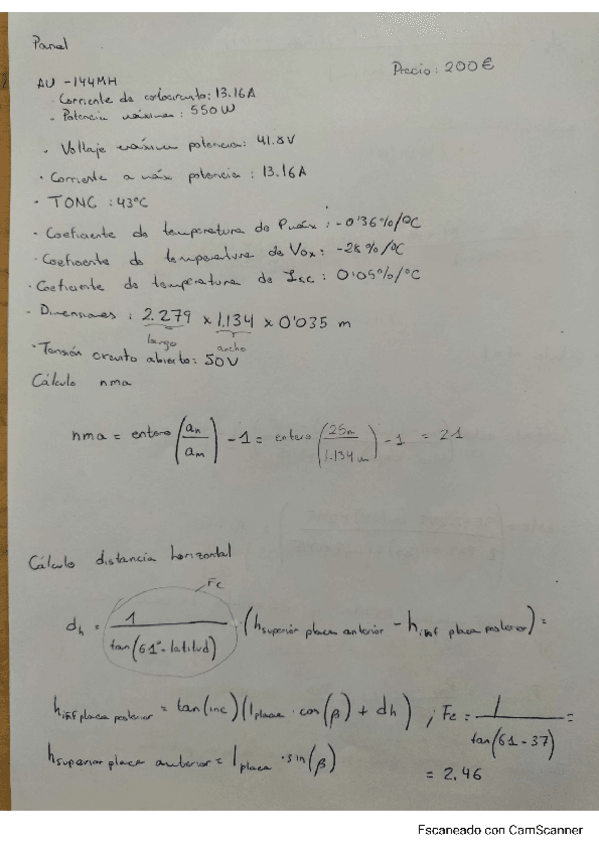 Panel
Precio: 200€
AU -144MH
· Corriente de cortocircuito: 13.16A
- Potencia máxima: 550W
· Voltaje máximum potencia: 41.8V
· Corriente a máx potencia: 13.16A
· TONC: 43ºC
· Coeficiente de temperatura de Pmáx: -0'36%/ºC
· Coeficiente de temperatura de Vox: -28%/ºC
· Coeficiente de temperatura de Isc: 0'05%/ºC
- Dimensiones: 2.279 x 1.134 x 0'035 m
largo ancho
· Tensión circuito abierto: 50V
Cálculo nma
nma = entero (an/am) - 1 = entero (25m/1.134m) - 1 = 21
Cálculo distancia horizontal
Fc
dh = 1/tan(61º-latitud) · (hsuperior placa anterior - hinf placa posterior) =
hinf placa posterior = tan(inc)(lplaca · cos(β) + dh) ; Fc = 1/tan(61-37) =
hsuperior placa anterior = lplaca · sin(β)
= 2.46
Escaneado con CamScanner